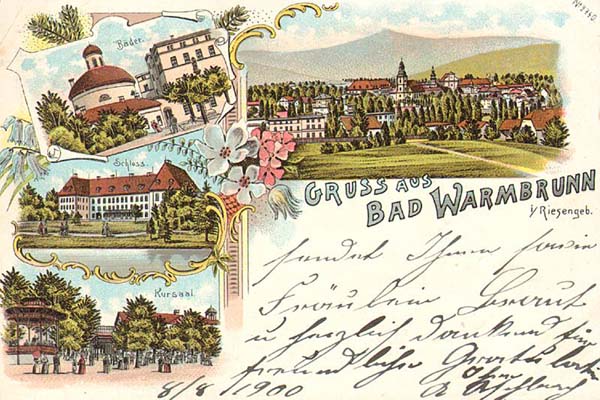 No 2340
Bäder.
Schloss.
Kursaal.
GRUSS AUS
BAD WARMBRUNN
i/ Riesengeb.
sendet Ihnen sowie
Fräulein Braut
u herzlich dankend für
freundliche Gratulation
Ihr
A
8/8 1900